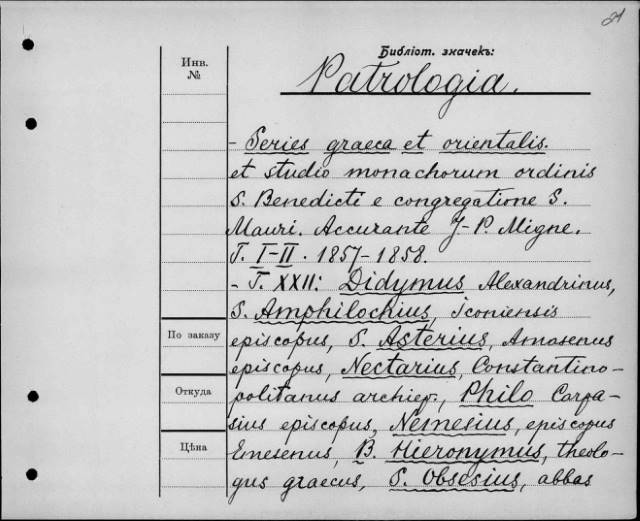 21
Библіот. значекъ:
Инв.
№
Patrologia.
- Series graeca et orientalis.
et studio monachorum ordinis
S. Benedicti e congregatione S.
Mauri. Accurante J-P. Migne.
T. I-II. 1857-1858.
- T. XXII: Didymus Alexandrinus,
S. Amphilochius, Iconiensis
По заказу
episcopus, S. Asterius, Amasenus
episcopus, Nectarius, Constantino-
Откуда
politanus archiep., Philo Carpa-
sius episcopus, Nemesius, episcopus
Цѣна
Emesenus, B. Hieronymus, theolo-
gus graecus, S. Obsesius, abbas